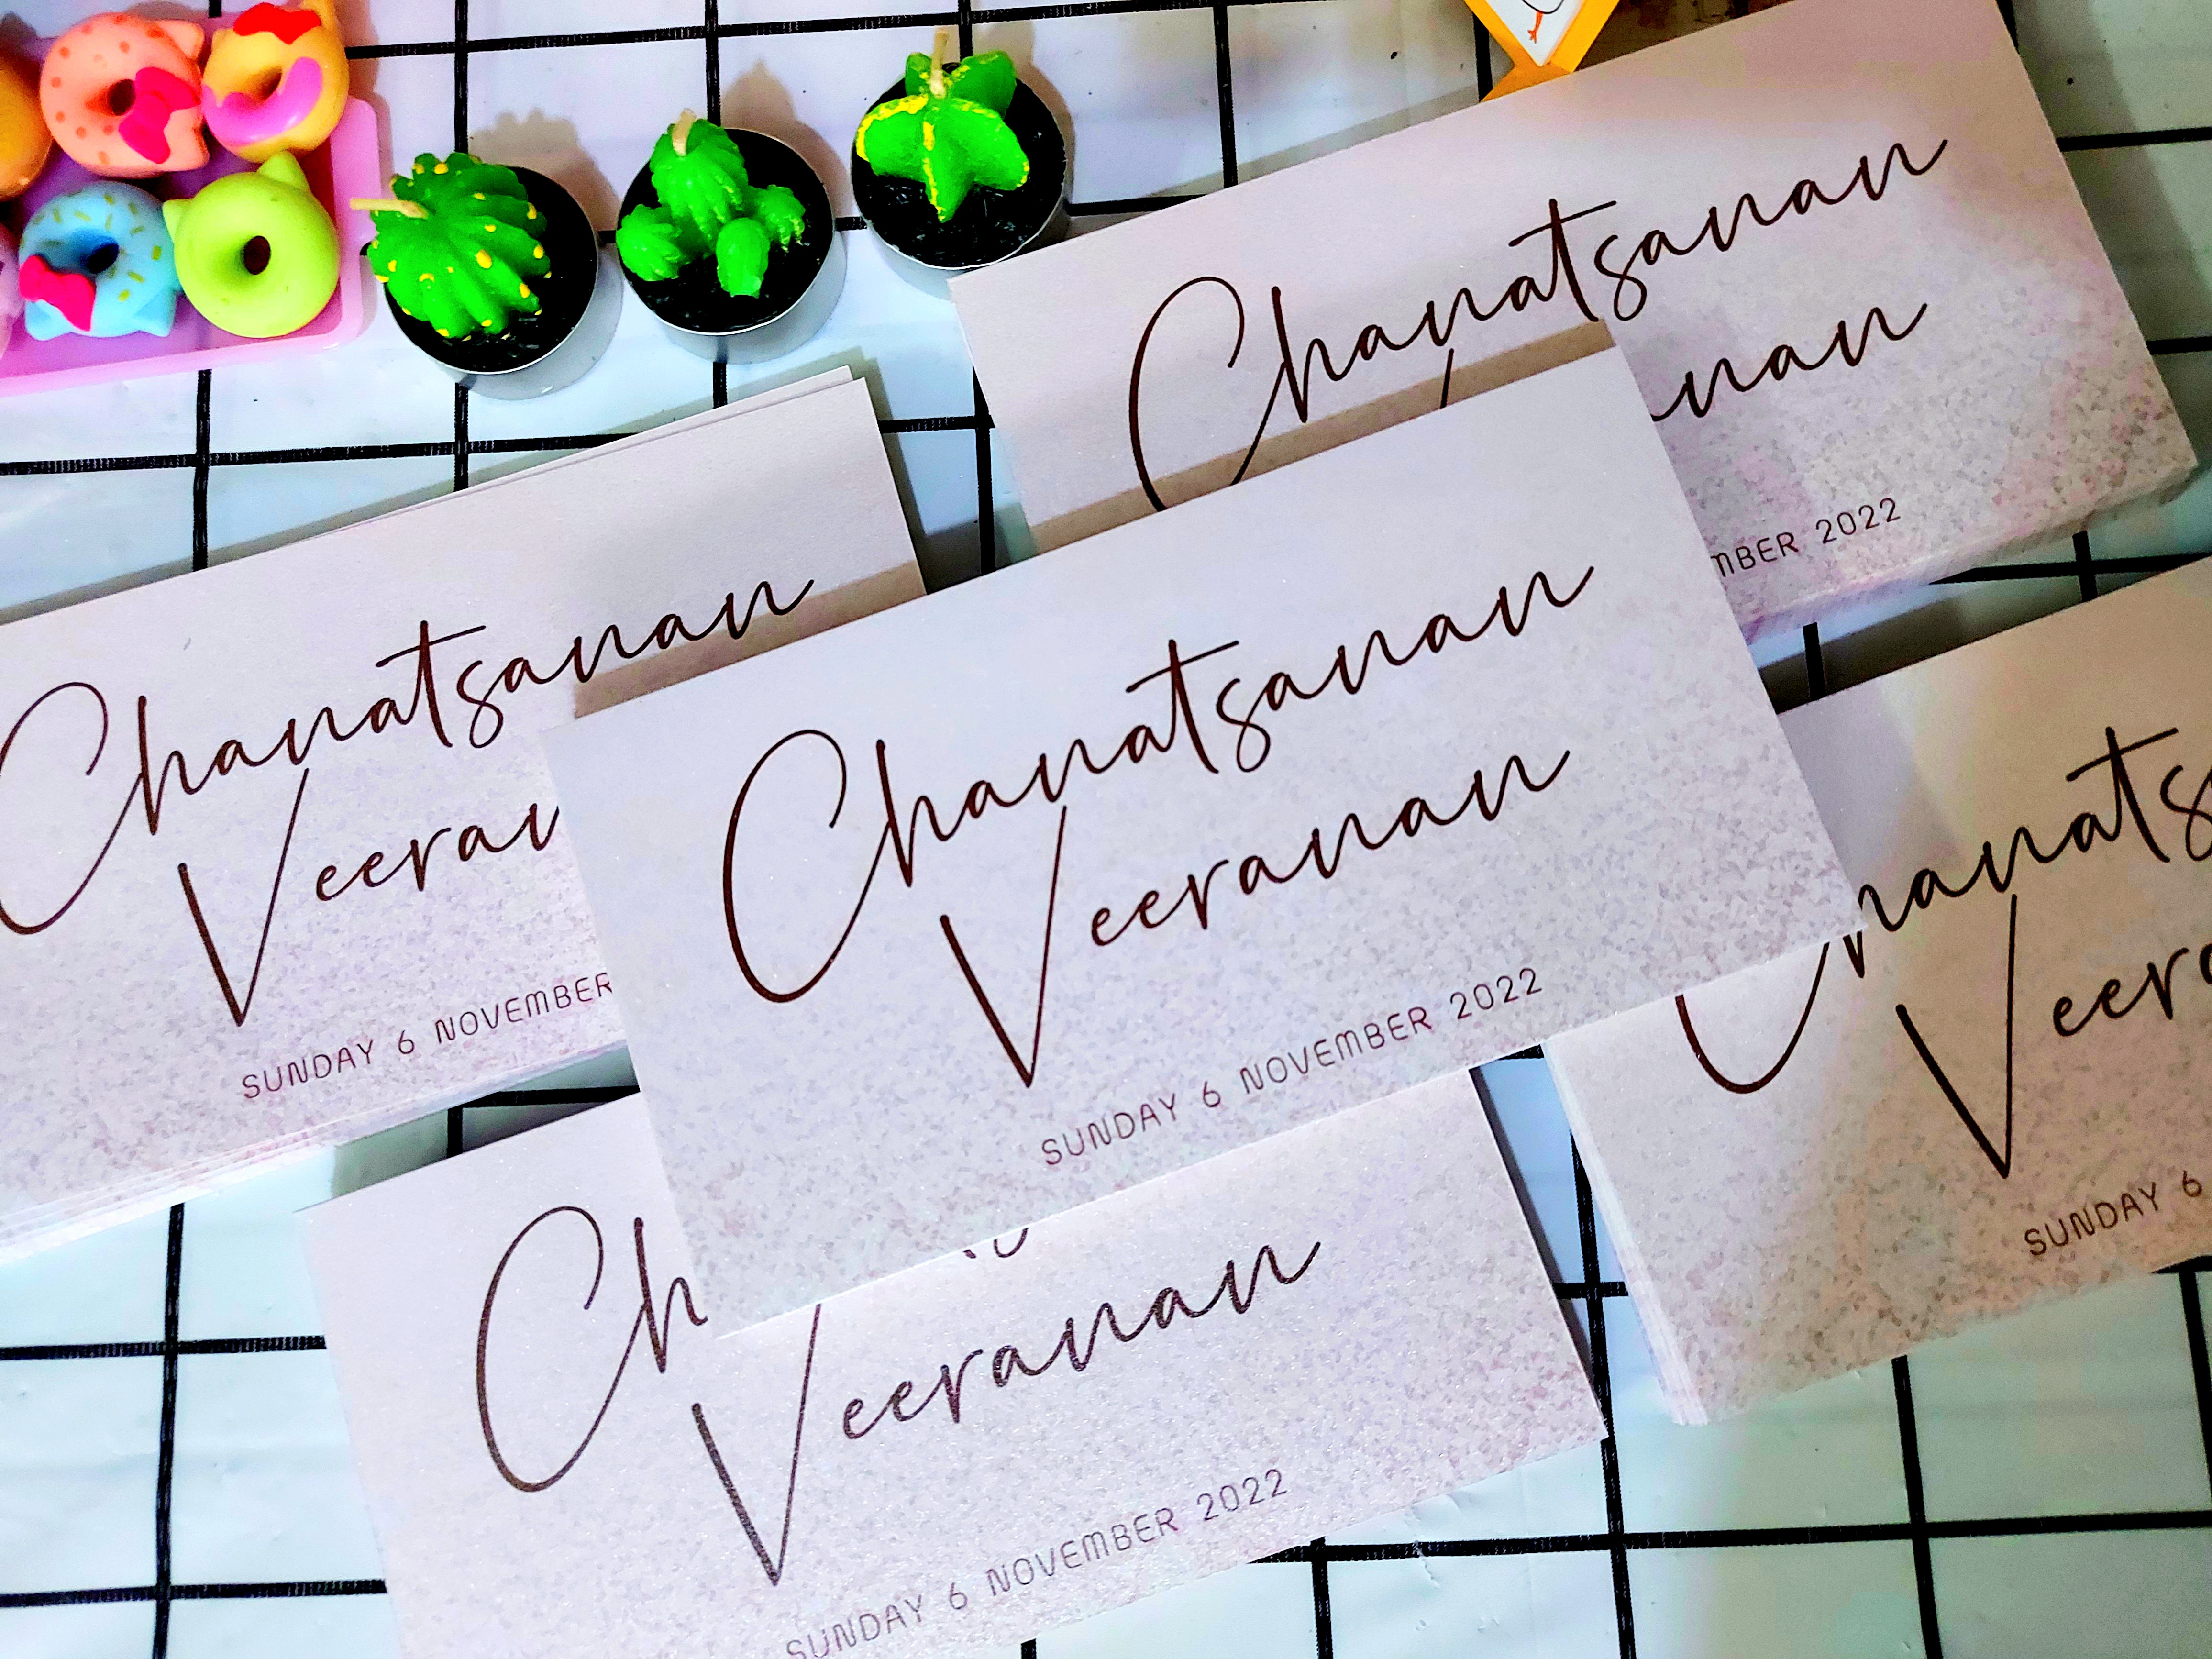 Chanatsanan
nan
MBER 2022
Chanatsanan
Veeran
SUNDAY 6 NOVEMBER
Chanatsanan
Veeranan
SUNDAY 6 NOVEMBER 2022
Chanats
Veera
SUNDAY 6
Ch
Veeranan
SUNDAY 6 NOVEMBER 2022